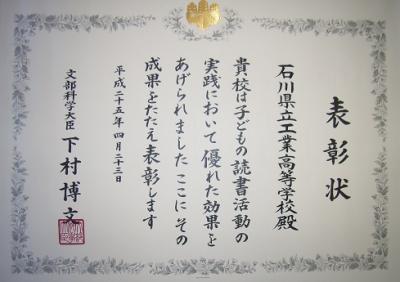 表彰状
石川県立工業高等学校殿
貴校は子どもの読書活動の
実践において優れた効果を
あげられました ここに その
成果をたたえ表彰します
平成二十五年 四月二十三日
文部科学大臣 下村博文